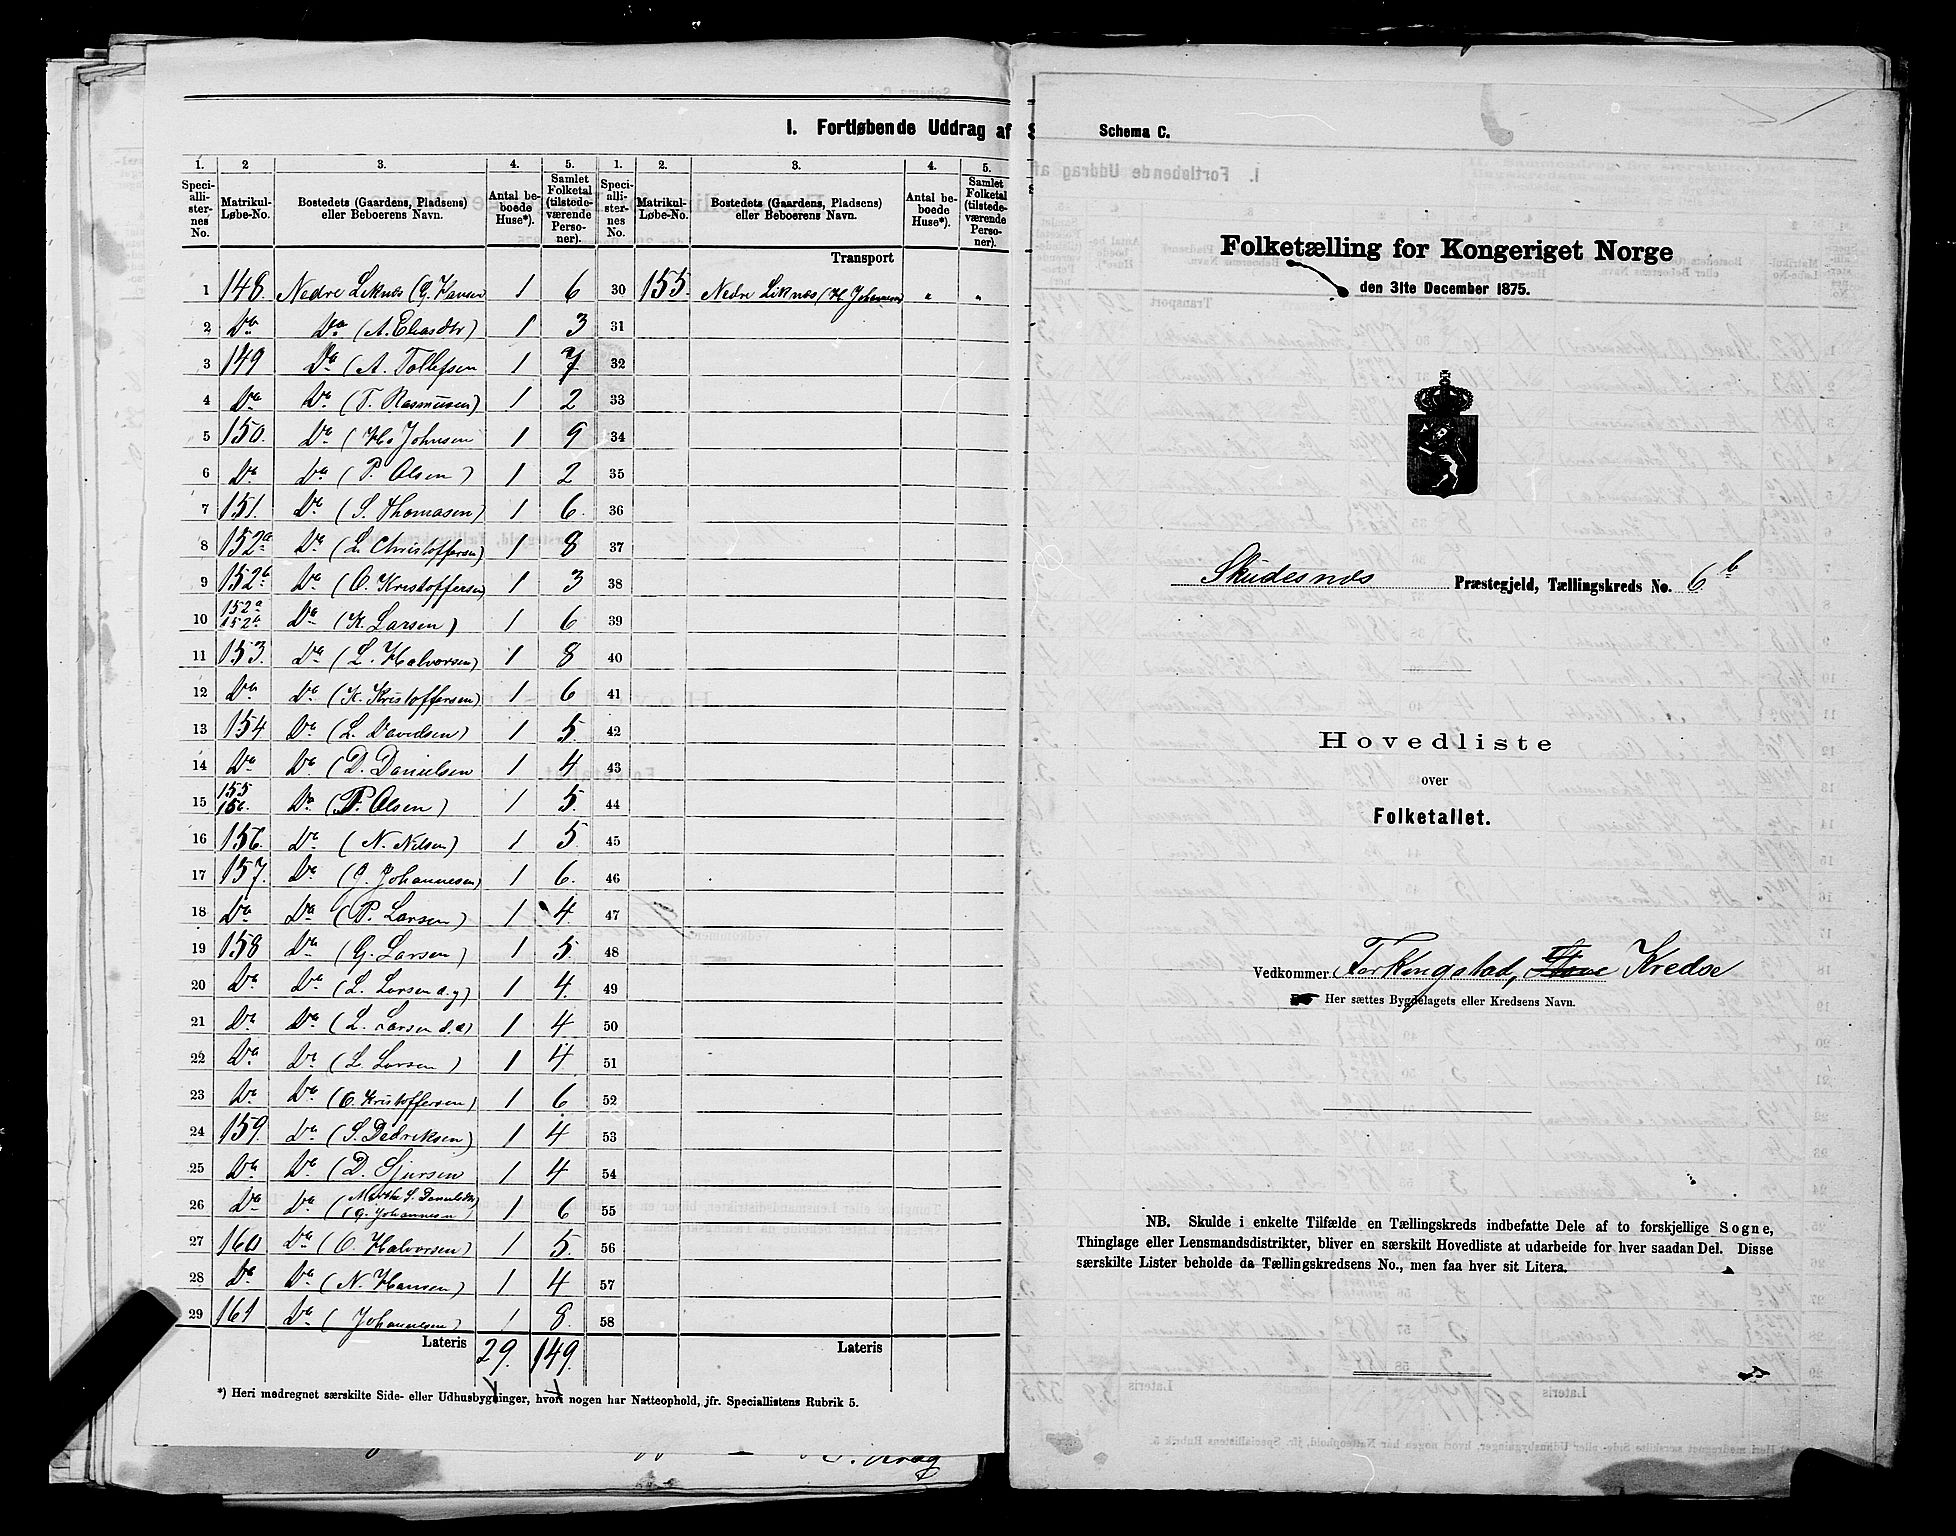 I. Fortløbende Uddrag af S
1. 2 3. 4. 5. 1. 2. 3. 4. 5.
Speci-alli-ster-nes No. Matrikul-Løbe-No. Bostedets (Gaardens, Pladsens) eller Beboerens Navn. Antal be-boede Huse*). Samlet Folketal (tilstede-værende Perso-ner). Speci-alli-ster-nes No. Matrikul-Løbe-No. Bostedets (Gaardens, Pladsens) eller Beboerens Navn. Antal be-boede Huse*). Samlet Folketal (tilstede-værende Perso-ner).
Transport
1 148. Nedre Liknes (G. Hansen 1 6 30 155. Nedre Liknes (H Johansen " "
2 Do Do (A. Eliasdtr) 1 3 31
3 149 Do (A. Tollefsen 1 7 32
4 Do Do (T. Rasmusen) 1 2 33
5 150. Do (Hs Johnsen 1 9 34
6 Do Do (P. Olsen) 1 2 35
7 151. Do (S. Thomasen) 1 6. 36
8 152a Do (L. Christoffersen) 1 8 37
9 152b Do (O. Kristoffersen) 1 3 38
10 152a 152b Do (K. Larsen) 1 6 39
11 153. Do (L. Halvorsen) 1 8 40
12 Do Do (K. Kristoffersen) 1 6 41
13 154 Do (L. Davidsen) 1 5. 42
14 Do Do (D. Danielsen 1 4 43
15 155 156. Do (P. Olsen) 1 5. 44
16 156. Do (N. Nilsen) 1 5. 45
17 157. Do (G. Johannesen) 1 6. 46
18 Do Do (P. Larsen) 1 4. 47
19 158 Do (G. Larsen) 1 5. 48
20 Do Do (L. Larsen d.y) 1 4. 49
21 Do Do (L. Larsen d.æ) 1 4 50
22 Do Do (L. Larsen) 1 4 51
23 Do Do (O. Kristoffersen) 1 6 52
24 159. Do (S. Dedriksen) 1 4 53
25 Do Do (D. Sjursen 1 4 54
26 Do Do (Marthe S. Danieldtr) (G. Johannesen) 1 6 55
27 160 Do (O. Halvorsen) 1 5. 56
28 Do Do (N. Hansen) 1 4 57
29 161 Do (Johannesen) 1 8. 58
Lateris 29. 149. Lateris
*) Heri medregnet særskilte Side- eller Udhusbygninger, hvori nogen har Natteophold, jfr. Speciallistens Rubrik 5.
Schema C.
Folketælling for Kongeriget Norge
den 31te December 1875.
Skudesnes Præstegjeld, Tællingskreds No. 6b
Hovedliste
over
Folketallet.
Vedkommer Ferkingstad, Stave Kredse
Her sættes Bygdelagets eller Kredsens Navn.
NB. Skulde i enkelte Tilfælde en Tællingskreds indbefatte Dele af to forskjellige Sogne,
Thinglage eller Lensmandsdistrikter, bliver en særskilt Hovedliste at udarbeide for hver saadan Del. Disse
særskilte Lister beholde da Tællingskredsens No., men faa hver sit Litera.